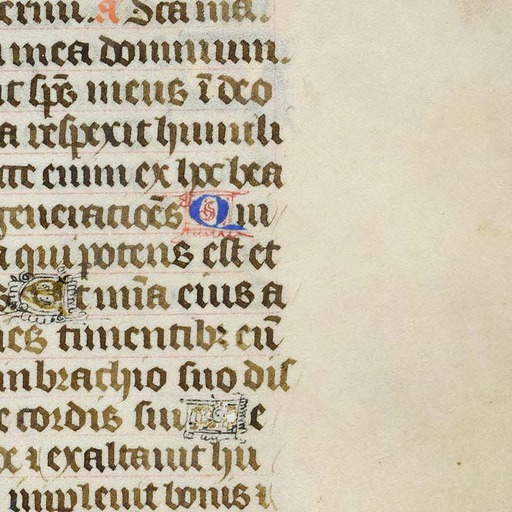 a Sca ma.
mea dominum.
it sps meus i deo
a respexit humili
cce enim ex hoc bea
generacioes Qui
a qui potens est et
t mia eius a
ies timentibz eu
in brachio suo dis
e cordis sui e
⁊ exaltavit hu
implevit bonis ⁊